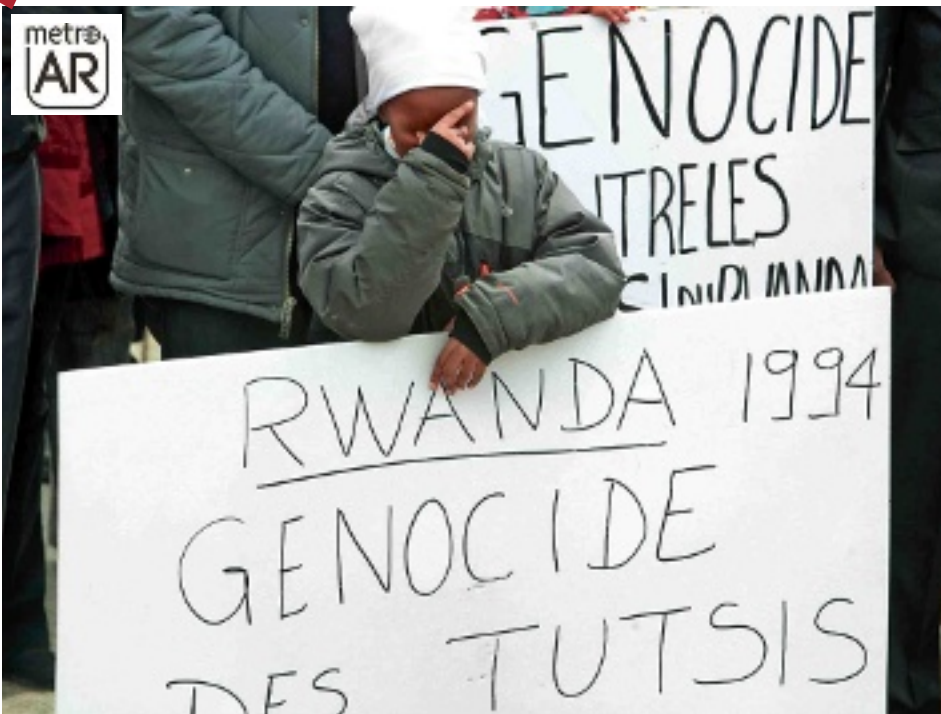 metro
AR
GENOCIDE
NTRELES
RWANDA
RWANDA 1994
GENOCIDE
DES TUTSIS